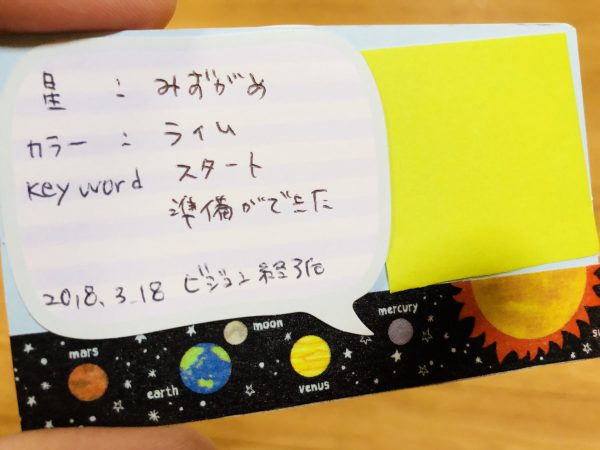 星 : みずがめ
カラー : ライム
Key word スタート
準備ができた
2018.3.18 ビジョン
mercury
moon
mars
earth
venus